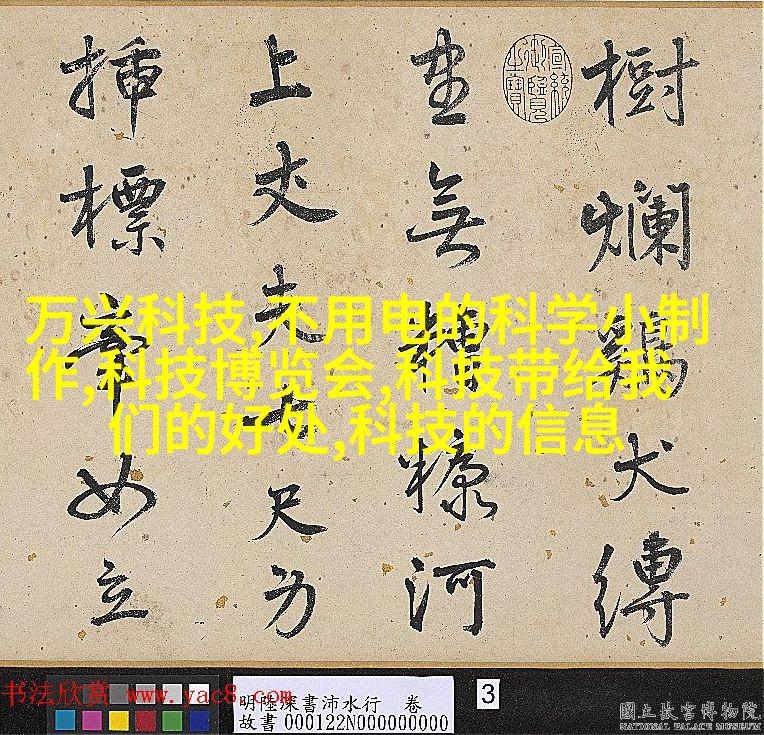 樹爛鷄犬縛
坐無糠河
上丈夫七尺
插標女立
宣統御覽之寶
万兴科技,不用电的科学小制
作,科技博览会,科技带给我
们的好处,科技的信息
书法欣赏 www.yac8.com
明陸深書沛水行 卷
故書000122N000000000
3
國立故宮博物院
NATIONAL PALACE MUSEUM